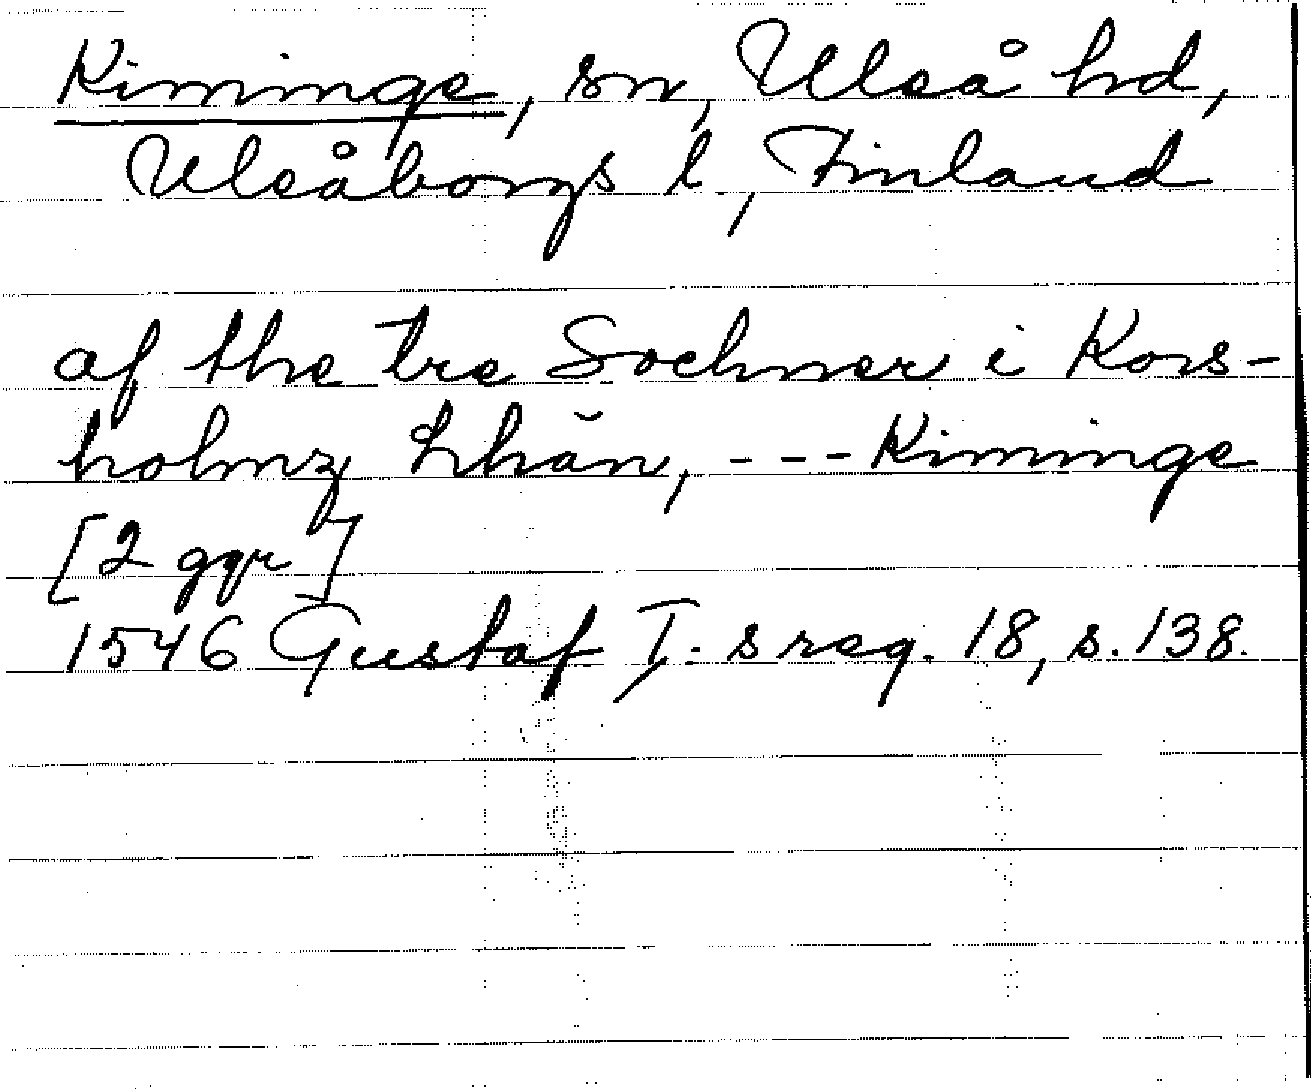 Kiminge, sn, Uleå hd,
Uleåborgs l., Finland
af the tre Sochner i Kors-
holmz Lhän, --- Kiminge
[2 ggr]
1546 Gustaf I:s reg. 18, s. 138.